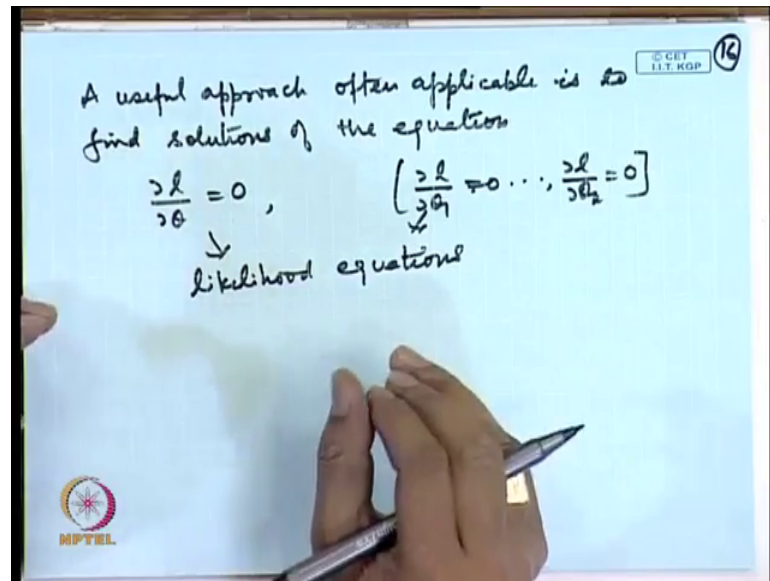 © CET
I.I.T. KGP
16
A useful approach often applicable is to
find solutions of the equation
∂l/∂θ = 0, (∂l/∂θ₁ = 0 ..., ∂l/∂θₖ = 0]
likelihood equations
NPTEL